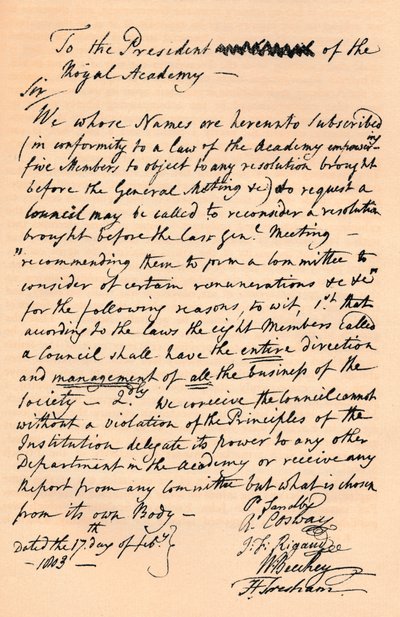 To the President of the
Royal Academy —
Sir
We whose Names are hereunto Subscribed
(in conformity to a law of the Academy empowering
five Members to object to any resolution brought
before the General Meeting &c) do request a
Council may be called to reconsider a resolution
brought before the last Genl. Meeting —
"recommending them to form a committee to
consider of certain remunerations &c &c"
for the following reasons, to wit, 1.st that
acording to the laws the eight Members called
a Council shall have the entire direction
and management of all the business of the
Society — 2.dly We conceive the Council cannot
without a violation of the Principles of the
Institution delegate its power to any other
Department in the Academy or receive any
Report from any committee but what is chosen
from its own Body —
P. Sandby
R. Cosway
J. F. Rigaud
W. Beechey
H. Tresham
Dated the 17.th day of Feb.y
— 1803 —